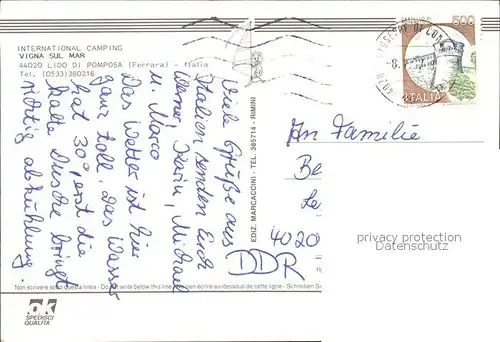 INTERNATIONAL CAMPING
VIGNA SUL MAR
44020 LIDO DI POMPOSA (Ferrara) - Italia
Tel. (0533) 380216
Viele Grüße aus
Italien senden Euch
Werner, Karin, Michael
u. Marco
Das Wetter ist hier
ganz toll. Das Wasser
hat 30° erst die
kalte Dusche bringt
richtig abkühlung.
EDIZ. MARCACCINI - TEL. 385714 - RIMINI
500
ITALIA
An Familie
Be
Le
4020
DDR
privacy protection
Datenschutz
Non scrivere sotto questa linea - Do not write below this line - Ne rien écrire au-dessous de cette ligne - Schreiben S
ok
SPEDISCI
QUALITA'